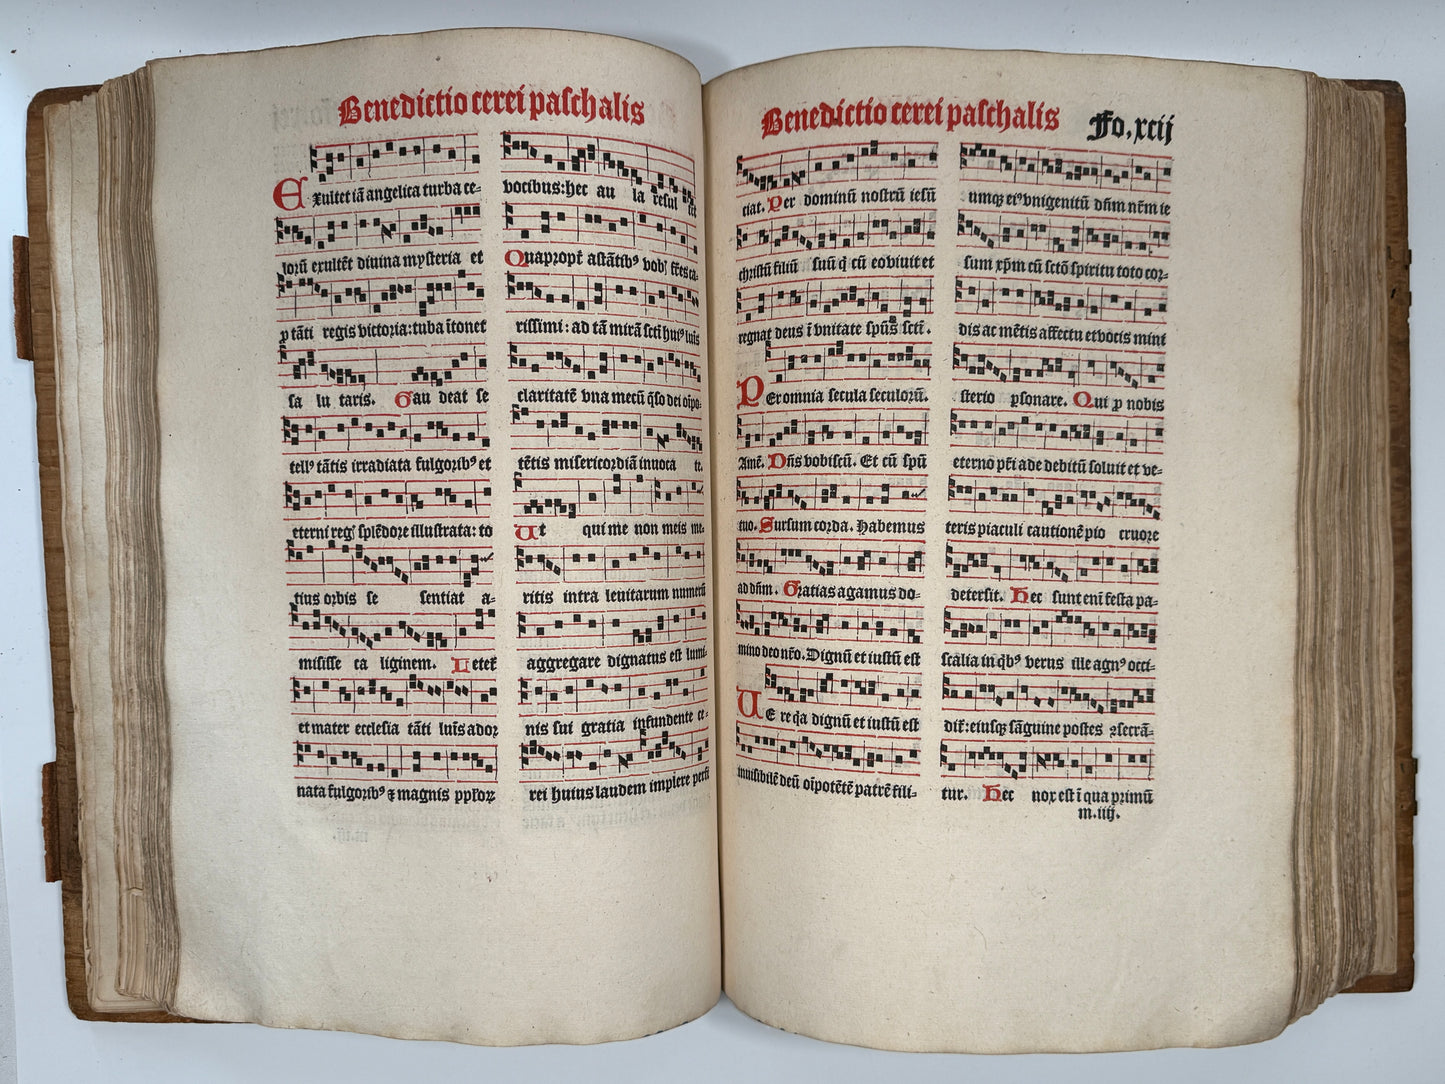 Benedictio cerei paschalis
Exultet iã angelica turba ce-
lorũ exultẽt divina mysteria et
ꝓ tãti regis victoria: tuba ĩtonet
sa lu taris. Gau deat se
tellꝰ tãtis irradiata fulgoribꝰ et
eterni regꝭ splẽdore illustrata: to
tius orbis se sentiat a-
misisse ca liginem. Letetꝛ
et mater ecclesia tãti luĩs ador
nata fulgoribꝰ ⁊ magnis ppl̃oꝝ
vocibus: hec au la resul tet
Quapropt̃ astãtibꝰ vobꝭ fr̃es ca-
rissimi: ad tã mirã sctĩ huiꝰ luĩs
claritatẽ vna mecũ q̃so dei oĩpo-
tẽtis misericordiã inuoca te.
Ut qui me non meis me-
ritis intra leuitarum numerũ
aggregare dignatus est lumi-
nis sui gratia infundente ce-
rei huius laudem implere perfi
Benedictio cerei paschalis Fo. xcij
ciat. Per dominũ nostrũ iesũ
christũ filiũ suũ q̃ cũ eo viuit et
regnat deus ĩ vnitate spũs sctĩ.
Per omnia secula seculorũ.
Amẽ. Dñs vobiscũ. Et cũ spũ
tuo. Sursum corda. Habemus
ad dñm. Gratias agamus do-
mino deo nr̃o. Dignũ et iustũ est
Ue re q̃a dignũ et iustũ est
inuisibilẽ deũ oĩpotẽtẽ patrẽ fili-
umqꝫ eiꝰ vnigenitũ dñm nr̃m ie
sum xp̃m cũ sctõ spiritu toto cor-
dis ac mẽtis affectu et vocis mini
sterio ꝑsonare. Qui ꝓ nobis
eterno pr̃i ade debitũ soluit et ve-
teris piaculi cautionẽ pio cruore
detersit. Hec sunt enĩ festa pa-
scalia in q̃bꝰ verus ille agnꝰ occi-
dit̃: eiusqꝫ sãguine postes ꝯsecrã-
tur. Hec nox est ĩ qua primũ
m.iiij.